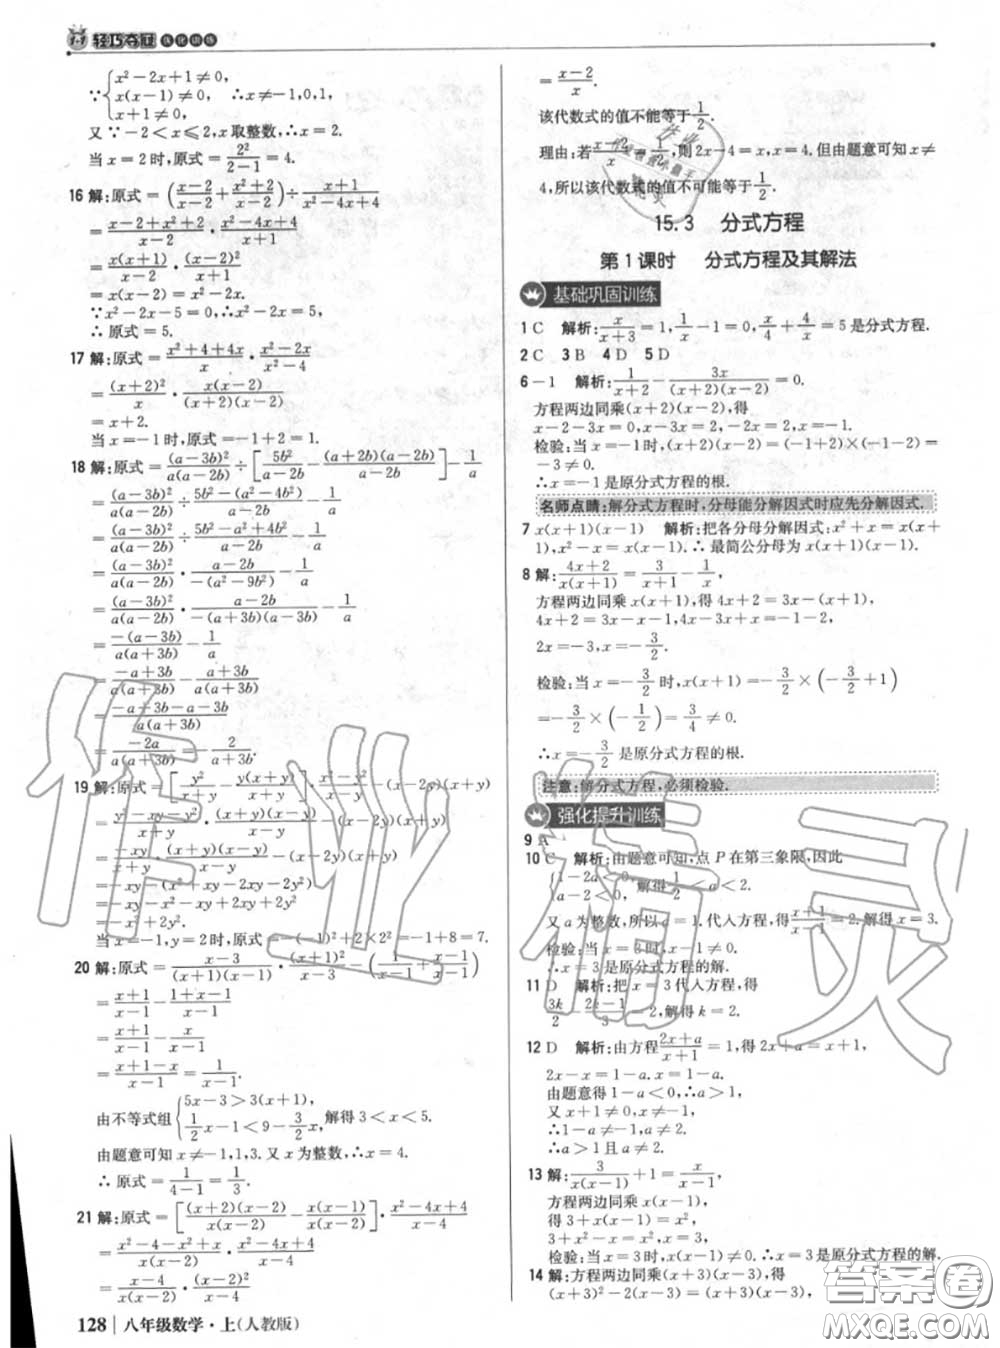 1+1 轻巧夺冠 优化训练
∵{x²-2x+1≠0, x(x-1)≠0, x+1≠0, ∴x≠-1,0,1.
又∵-2<x≤2,x取整数,∴x=2.
当x=2时,原式=2²/(2-1)=4.
16 解:原式=((x-2)/(x-2)+(x²+2)/(x-2))÷(x+1)/(x²-4x+4)
=(x-2+x²+2)/(x-2)·(x²-4x+4)/(x+1)
=x(x+1)/(x-2)·(x-2)²/(x+1)
=x(x-2)=x²-2x.
∵x²-2x-5=0,∴x²-2x=5,
∴原式=5.
17 解:原式=(x²+4+4x)/x·(x²-2x)/(x²-4)
=(x+2)²/x·x(x-2)/((x+2)(x-2))
=x+2.
当x=-1时,原式=-1+2=1.
18 解:原式=(a-3b)²/(a(a-2b))÷[5b²/(a-2b)-(a+2b)(a-2b)/(a-2b)]-1/a
=(a-3b)²/(a(a-2b))÷(5b²-(a²-4b²))/(a-2b)-1/a
=(a-3b)²/(a(a-2b))÷(5b²-a²+4b²)/(a-2b)-1/a
=(a-3b)²/(a(a-2b))·(a-2b)/(-(a²-9b²))-1/a
=(a-3b)²/(a(a-2b))·(a-2b)/(-(a+3b)(a-3b))-1/a
=-(a-3b)/(a(a+3b))-1/a
=(-a+3b)/(a(a+3b))-(a+3b)/(a(a+3b))
=(-a+3b-a-3b)/(a(a+3b))
=-2a/(a(a+3b))=-2/(a+3b).
19 解:原式=[y²/(x+y)-y(x+y)/(x+y)]÷(x-y)/(x+y)-(x-2y)(x+y)
=·(x+y)(x-y)-(x-2y)(x+y)
=-xy/(x+y)·
=-xy-(x²-xy-2y²)
=-xy-x²+xy+2y²
=-x²+2y².
当x=-1,y=2时,原式=-(-1)²+2×2²=-1+8=7.
20 解:原式=(x-3)/((x+1)(x-1))·(x+1)²/(x-3)-(1/(x-1)+(x-1)/(x-1))
=(x+1)/(x-1)-(1+x-1)/(x-1)
=(x+1)/(x-1)-x/(x-1)
=(x+1-x)/(x-1)=1/(x-1).
由不等式组{5x-3>3(x+1), 1/2x-1<9-3/2x, 解得3<x<5.
由题意可知x≠-1,1,3.又x为整数,∴x=4.
∴原式=1/(4-1)=1/3.
21 解:原式=[(x+2)(x-2)/(x(x-2))-x(x-1)/(x(x-2))]·(x²-4x+4)/(x-4)
=(x²-4-x²+x)/(x(x-2))·(x-2)²/(x-4)
=(x-4)/(x(x-2))·(x-2)²/(x-4)
128 八年级数学·上(人教版)
=(x-2)/x.
该代数式的值不能等于1/2.
理由:若(x-2)/x=1/2,则2x-4=x,x=4.但由题意可知x≠
4,所以该代数式的值不可能等于1/2.
15.3 分式方程
第1课时 分式方程及其解法
基础巩固训练
1 C 解析:x/(x+3)=1,1/x-1=0,x/4+4/x=5是分式方程.
2 C 3 B 4 D 5 D
6 -1 解析:1/(x+2)-3x/((x+2)(x-2))=0.
方程两边同乘(x+2)(x-2),得
x-2-3x=0,x-3x=2,-2x=2,x=-1.
检验:当x=-1时,(x+2)(x-2)=(-1+2)×(-1-2)=
-3≠0.
∴x=-1是原分式方程的根.
名师点睛:解分式方程时,分母能分解因式时应先分解因式.
7 x(x+1)(x-1) 解析:把各分母分解因式:x²+x=x(x+
1),x²-x=x(x-1).∴最简公分母为x(x+1)(x-1).
8 解:(4x+2)/(x(x+1))=3/(x+1)-1/x,
方程两边同乘x(x+1),得4x+2=3x-(x+1),
4x+2=3x-x-1,4x-3x+x=-1-2,
2x=-3,x=-3/2.
检验:当x=-3/2时,x(x+1)=-3/2×(-3/2+1)
=-3/2×(-1/2)=3/4≠0.
∴x=-3/2是原分式方程的根.
注意:解分式方程,必须检验.
强化提升训练
9 A
10 C 解析:由题意可知,点P在第三象限,因此
{1-2a<0, a-2<0, 解得1/2<a<2.
又a为整数,所以a=1.代入方程,得(x+1)/(x-1)=2.解得x=3.
检验:当x=3时,x-1≠0.
∴x=3是原分式方程的解.
11 D 解析:把x=3代入方程,得
3k/2-(2k-1)/3=2,解得k=2.
12 D 解析:由方程(2x+a)/(x+1)=1,得2x+a=x+1,
2x-x=1-a,x=1-a.
由题意得1-a<0,∴a>1.
又x+1≠0,x≠-1.
∴1-a≠-1,∴a≠2.
∴a>1且a≠2.
13 解:3/(x(x-1))+1=x/(x-1).
方程两边同乘x(x-1),
得3+x(x-1)=x²,
3+x²-x=x²,x=3.
检验:当x=3时,x(x-1)≠0.∴x=3是原分式方程的解.
14 解:方程两边同乘(x+3)(x-3),得
(x+3)²-2(x-3)=(x-3)(x+3).
作业精灵
答案圈